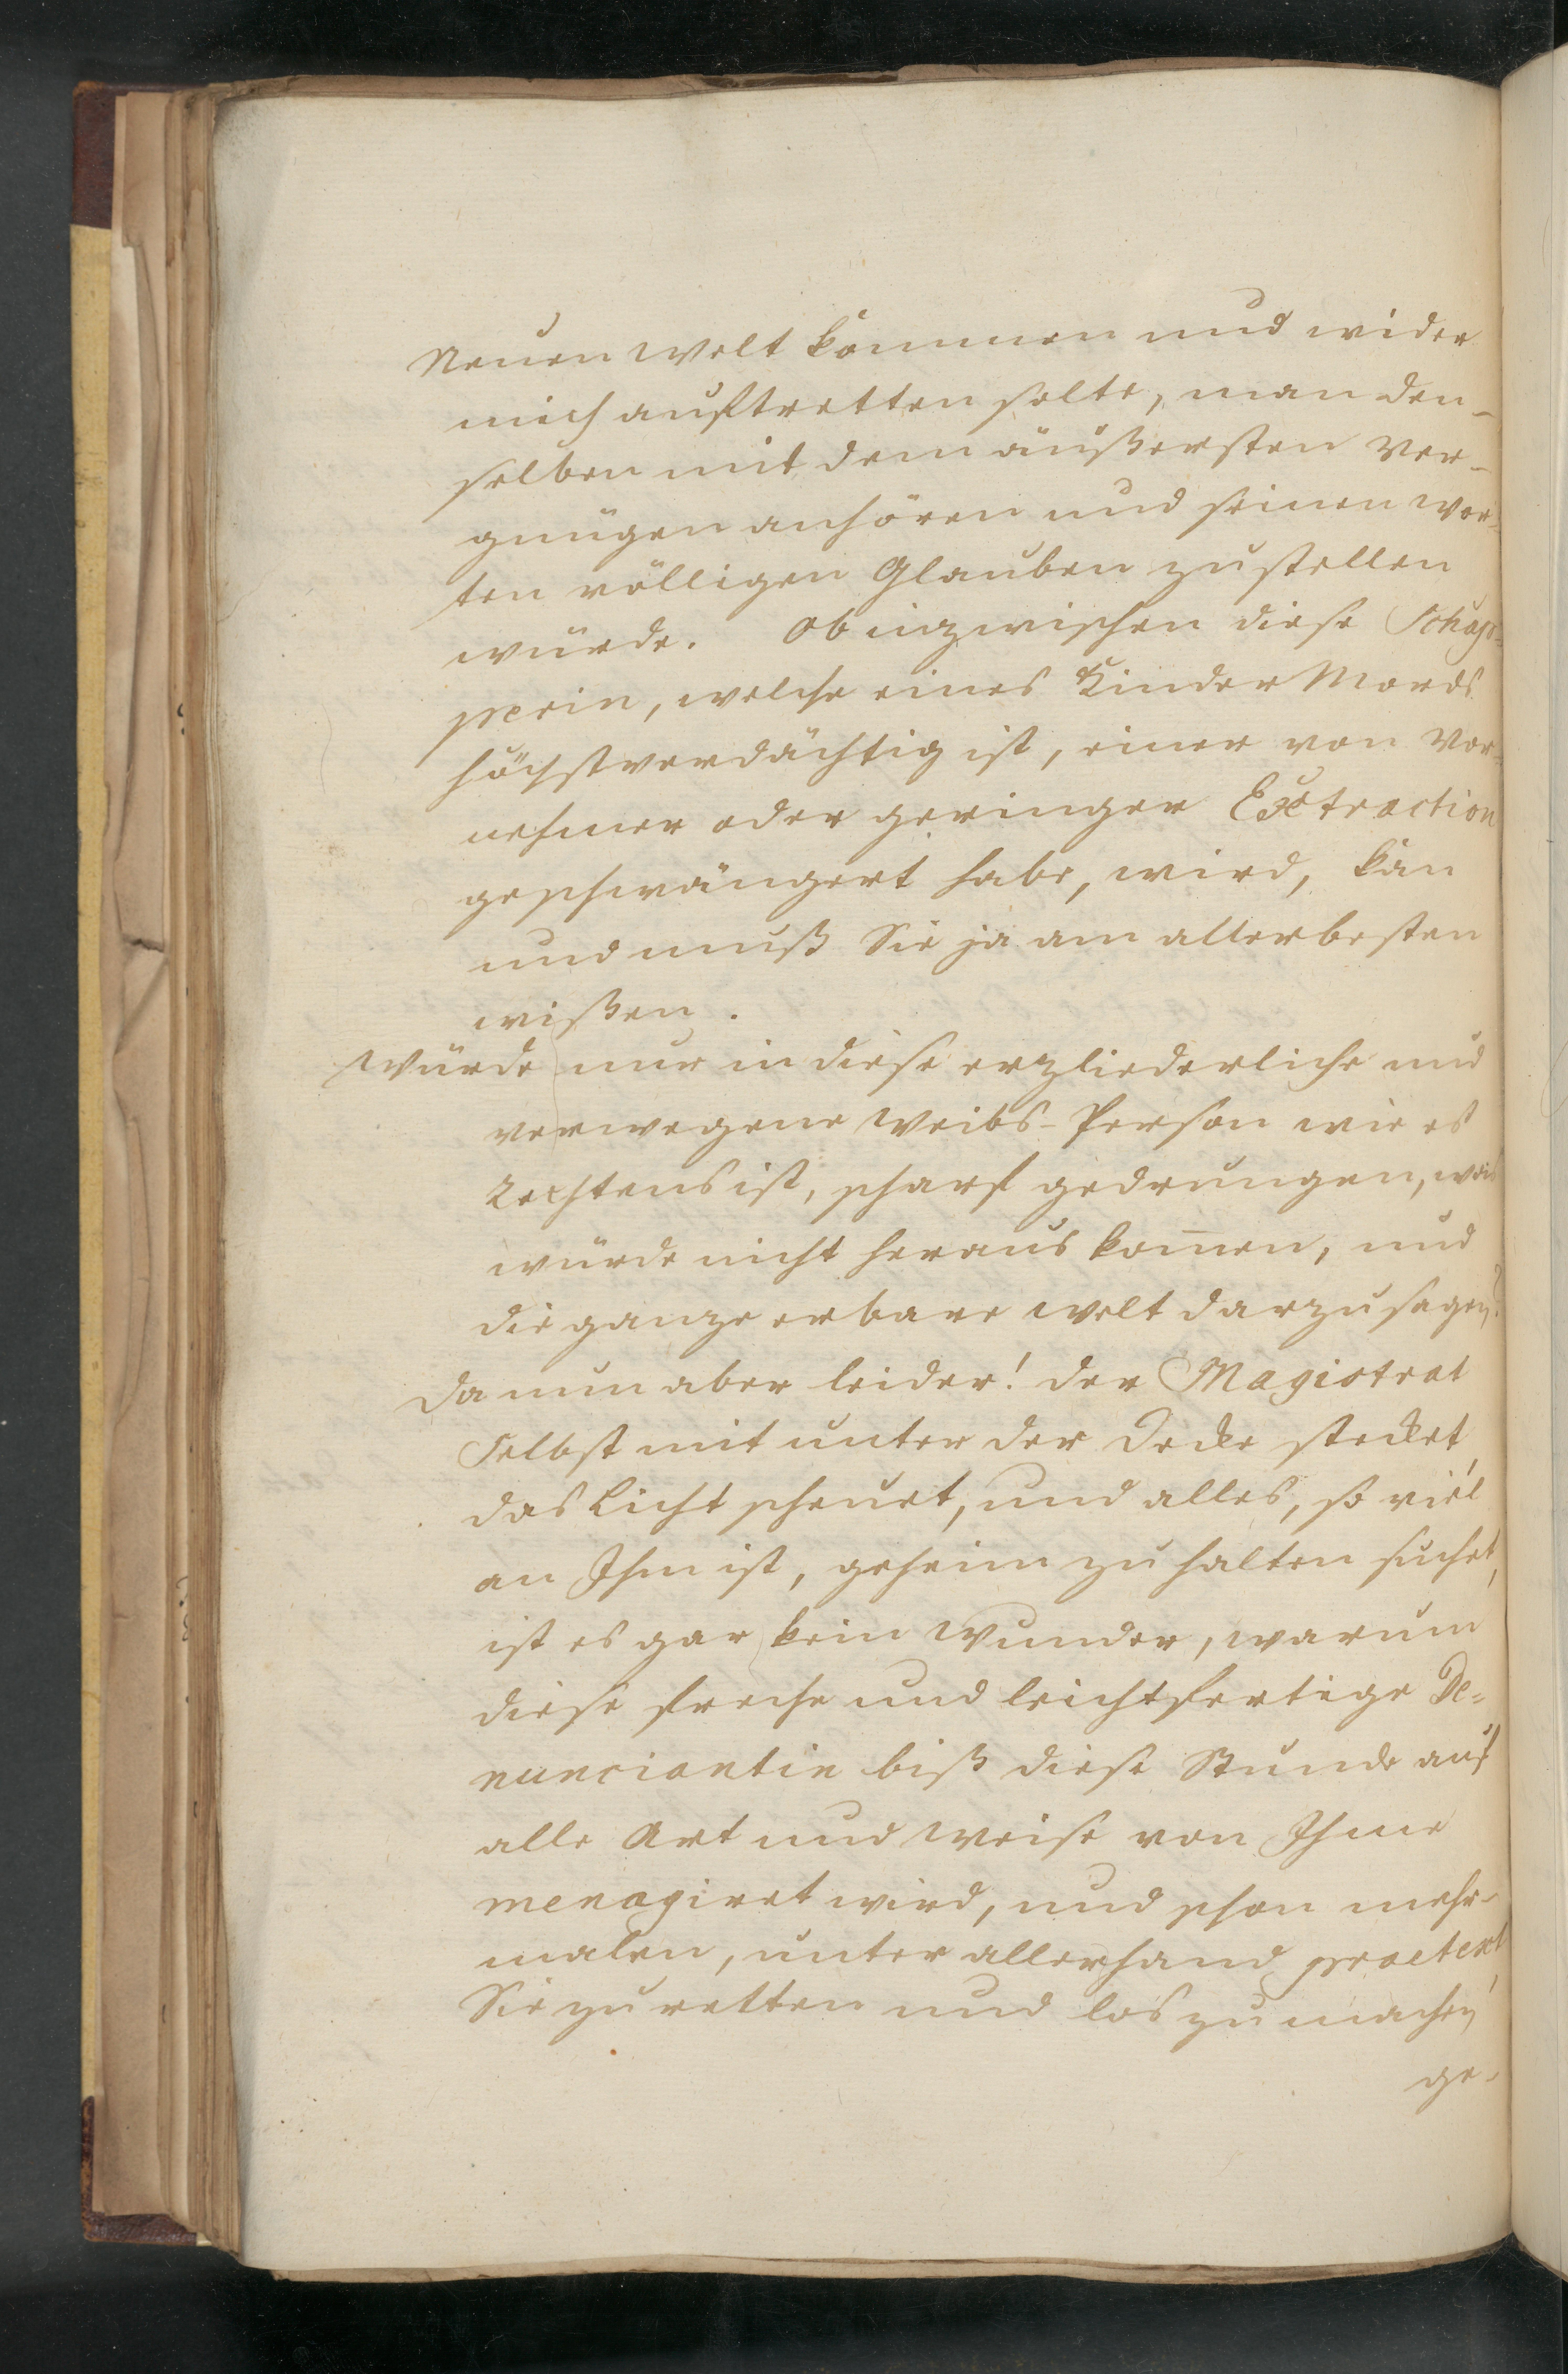 Neuen Welt kommen und wider
mich auftretten solte, man den-
selben mit dem äußersten Ver-
gnügen anhören und seinen Wor-
ten völligen Glauben zustellen
würde. Ob inzwischen diese Schap-
perin, welche eines Kinder Mords
höchstverdächtig ist, einer von Vor-
nehmer oder geringer Extraction
geschwängert habe, wird, kan
und muß Sie ja am allerbesten
wißen.
Würde nur in diese erzliederliche und
verwegene Weibs-Person wie es
Rechtens ist, scharf gedrungen, was
würde nicht heraus kom̄en, und
die ganze erbare Welt darzu sagen?
Da nun aber leider! der Magistrat
Selbst mit unter der Decke stecket,
das Licht scheuet, und alles, so viel
an Ihm ist, geheim zu halten suchet,
ist es gar kein Wunder, warum
diese freche und leichtfertige De-
nunciantin biß diese Stunde auf
alle Art und Weise von Ihme
menagiret wird, und schon mehr-
malen, unter allerhand praetext,
Sie zu retten und los zu machen,
ge-